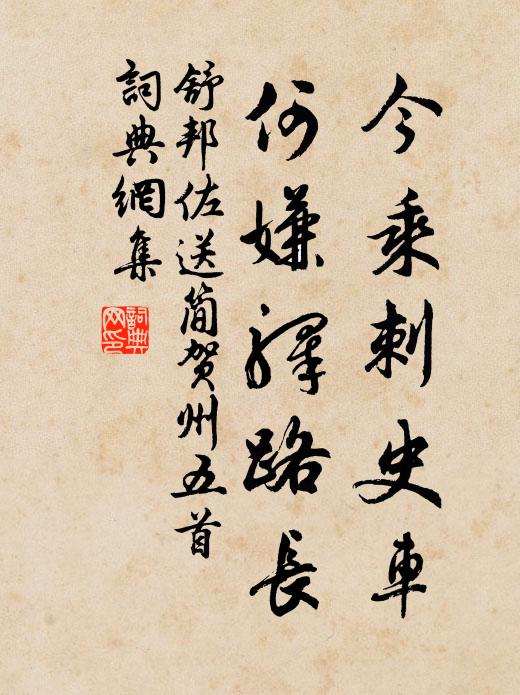 今乘刺史車
何嫌驛路長
舒邦佐送簡賀州五首
詞典網集
詞典网印